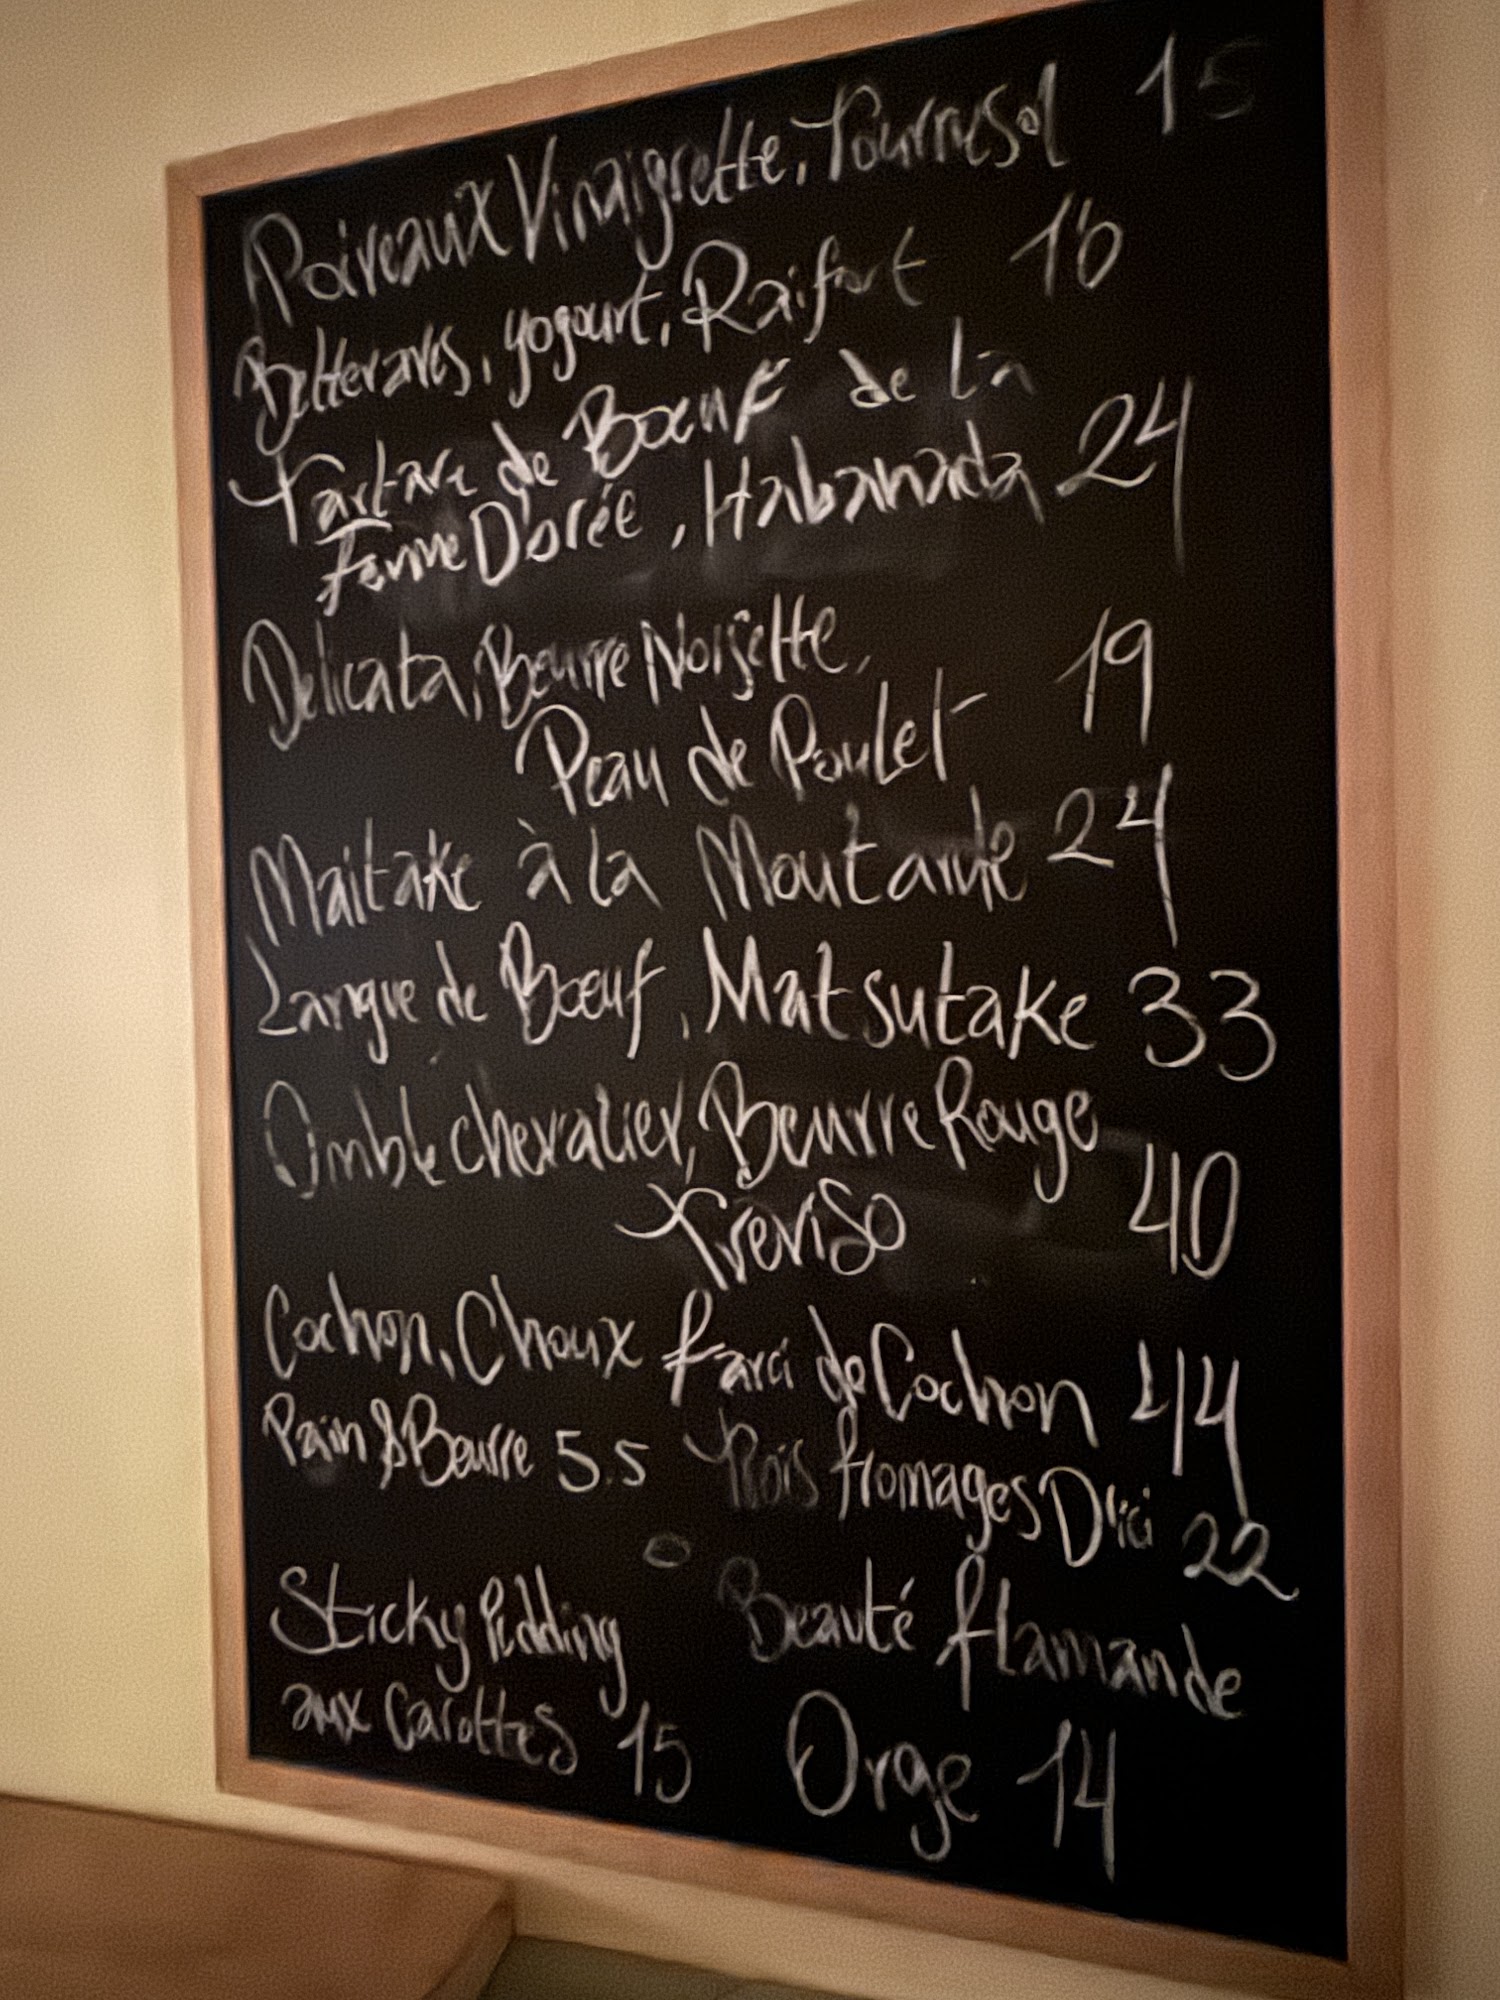 Poireaux Vinaigrette, Tournesol 15
Betteraves, yogourt, Raifort 16
Tartare de Boeuf de la
Ferme Dorée, Habanada 24
Delicata, Beurre Noisette, 19
Peau de Poulet
Maitake à la Moutarde 24
Langue de Boeuf, Matsutake 33
Omble chevalier, Beurre Rouge
Treviso 40
Cochon, Choux farci de Cochon 44
Pain & Beurre 5.5
Trois fromages D'ici 22
Sticky Pudding
aux Carottes 15
Beauté flamande
Orge 14